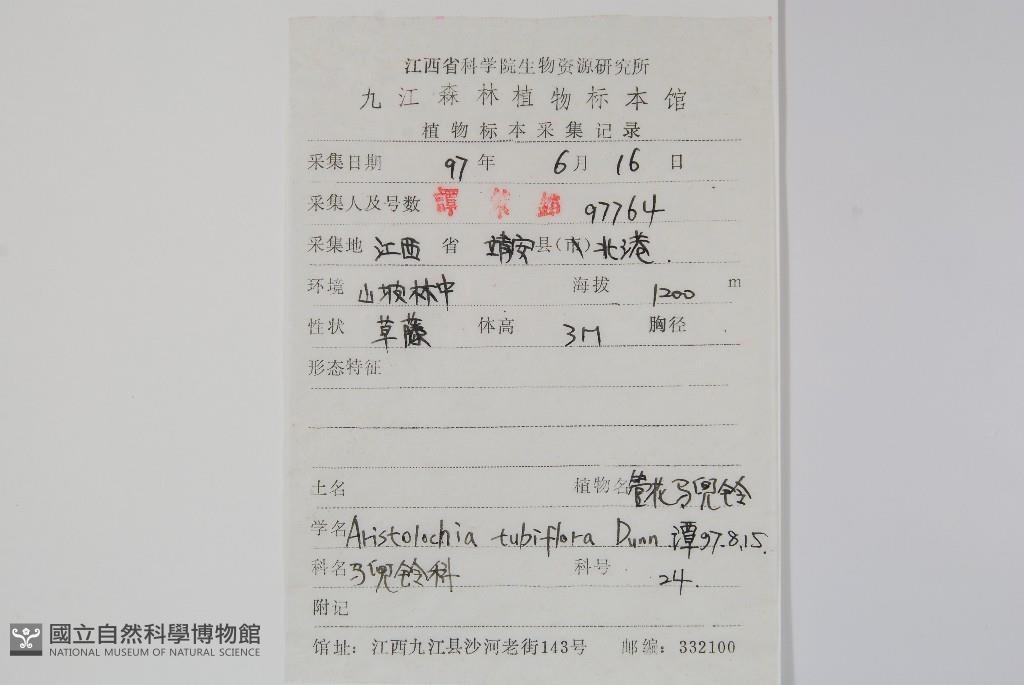 江西省科学院生物资源研究所
九江森林植物标本馆
植物标本采集记录
采集日期 97 年 6 月 16 日
采集人及号数 譚 策 銘 97764
采集地 江西 省 靖安 县(市) 北港.
环境 山坡林中 海拔 1200 m
性状 草藤 体高 3M 胸径
形态特征
土名 植物名 管花马兜铃
学名 Aristolochia tubiflora Dunn 潭97.8.15.
科名 马兜铃科 科号 24.
附记
馆址：江西九江县沙河老街143号 邮编：332100
國立自然科學博物館
NATIONAL MUSEUM OF NATURAL SCIENCE